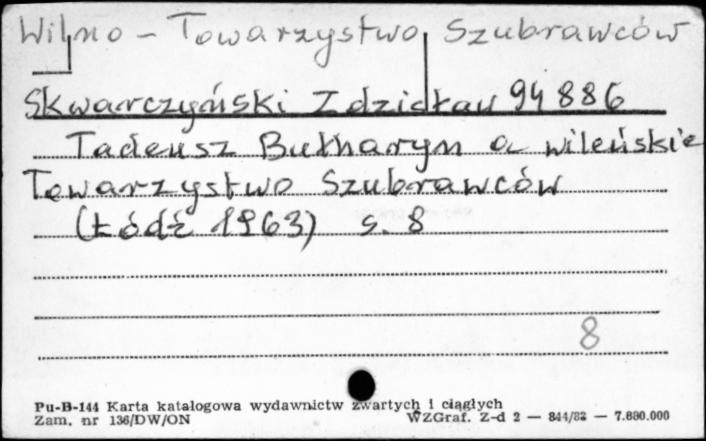 Wilno - Towarzystwo Szubrawców
Skwarczyński Zdzisław 94886
Tadeusz Bułharyn a wileńskie
Towarzystwo Szubrawców
(Łódź 1963) s. 8
8
Pu-B-144 Karta katalogowa wydawnictw zwartych i ciągłych
Zam. nr 136/DW/ON WZGraf. Z-d 2 — 844/82 — 7.680.000